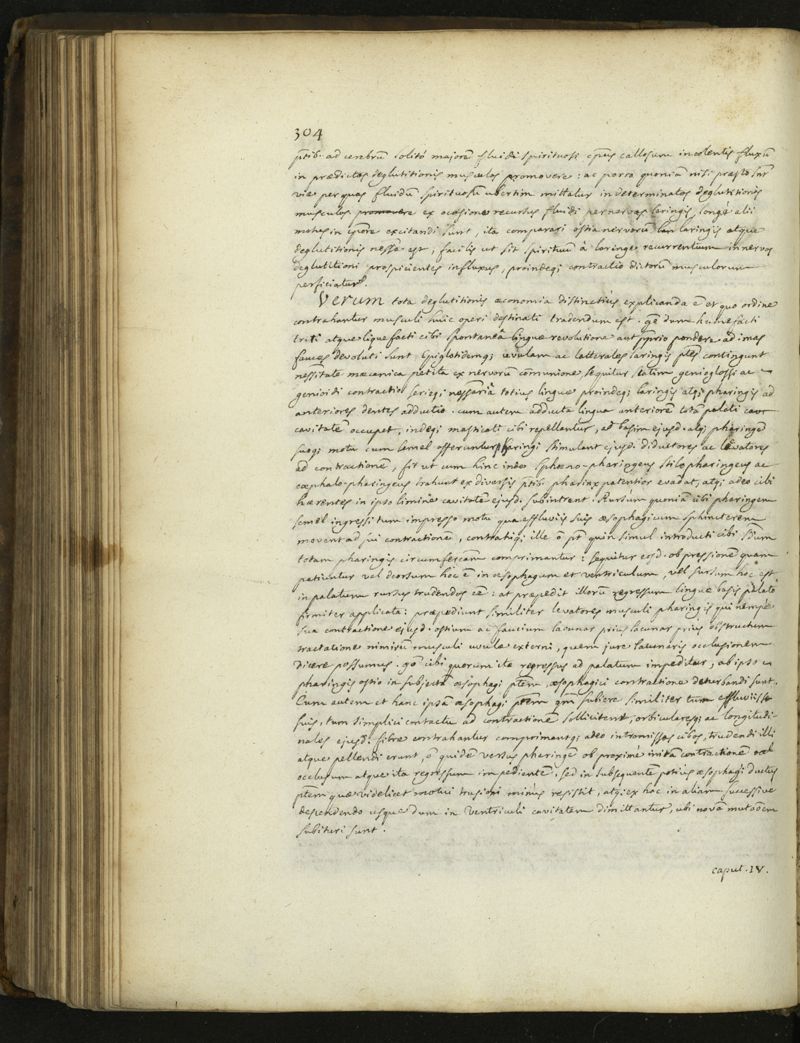 304
ptib. ad cerebrũ solitò majorẽ fluidi spirituosi cpus callosum incolentis fluxũ
in prædictos deglutitionis musculos promovere: ac porro quoniã nisi præsto snt
viæ per quas fluidũ spirituosũ ubertim mittatur in determinatos deglutitionis
musculos promovere ex occasione recursus fluidi per nervos laringis, longè alii
motus in cpore excitandi sunt, ita comparari ostia nervorũ lar laringis atque
deglutitionis nesse est; facilis ut sit spirituũ à laringe recurrentium in nervos
deglutitioni prospicientes influxus, proindeq; contractio dictorũ musculorum
perficiatur.
Verum tota deglutitionis œconomia distinctius explicanda ẽ et quo ordine
contrahantur musculi huic operi destinati tradendum est. gõ dum humefacti
triti atque liquefacti cibi spontaneâ linguæ revolutione aut pprio pondere ad imas
fauces devoluti sunt Epiglotidemq; uvulam ac laterales laringis ptes contingunt
nessitate mecanica petita ex nervorũ comunione sequitur statim genioglossi ac
genioidi contractio serieq; nessariâ totius linguæ proindeq; laringis atq; pharingis ad
anteriores dentes adductio. cum autem adducta lingua anteriorẽ totã palati cavi
cavitatẽ occupet, indeq; masticati cibi repellantur, ad basim ejusd. atq; pharingẽ
suoq; motu cum semel offeruntur pharingi stimulant ejusd. diductores ac levatores
ad contractionẽ, fit ut cum hinc inde spheno-pharingeus stilopharingeus ac
cephalo-pharingeus trahunt ex diversis ptib. pharinx patentior evadat, atq; adeo cibi
hærentes in ipso limine cavitatẽ ejusd. subintrent. Rursum quoniã cibi pharingem
semel ingressi tum impresso motu quâ effluviis suis œsophagicum sphincterem
movent ad sui contractionẽ, contrahiq; ille õ pt quin simul introducti cibi
totam pharingis circumferẽam comprimantur: sequitur eosd. ob pressionẽ quam
patiuntur vel deorsum hoc ẽ in œsophagum et ventriculum, vel sursum hoc est
in palatum rursus trudendos eẽ: at præpedit illorũ regressum linguæ basis palato
firmiter applicata: præpediunt similiter levatores musculi pharingis qui nempè
sua contractione ejusd. ostium ac faucium lacunar prius lacunar prius obstructum
tractatione nimirũ musculi uvulæ externi, quem jure lacunaris occlusionem
dicere possumus. gõ cibi quorum ita regressus ad palatum impeditur, ab ipso
pharingis ostio in subjectã œsophagi ptẽm œsophagici contractione deturbandi sunt.
Cum autem et hanc ipsã œsophagi ptẽm qm subiere similiter tum effluviis
suis, tum simplici contactu ad contractionẽ sollicitent, orbiculares q; ac longitudi-
nales ejusd. fibræ contrahantur comprimantq; adeo intromissos cibos, trudendi illi
atque pellendi erunt, õ quidẽ versus pharingẽ ob proximè initã contractionẽ
occlusum atque ita regressum impedientẽ, sed in subsequentẽ potius œsophagi ductus
ptẽm quæ videlicet motui trusioni minus resistit, atq; ex hoc in aliam successive
descendendo usque dum in ventriculi cavitatem dimittantur, ubi novã mutaõem
subituri sunt.
caput. IV.